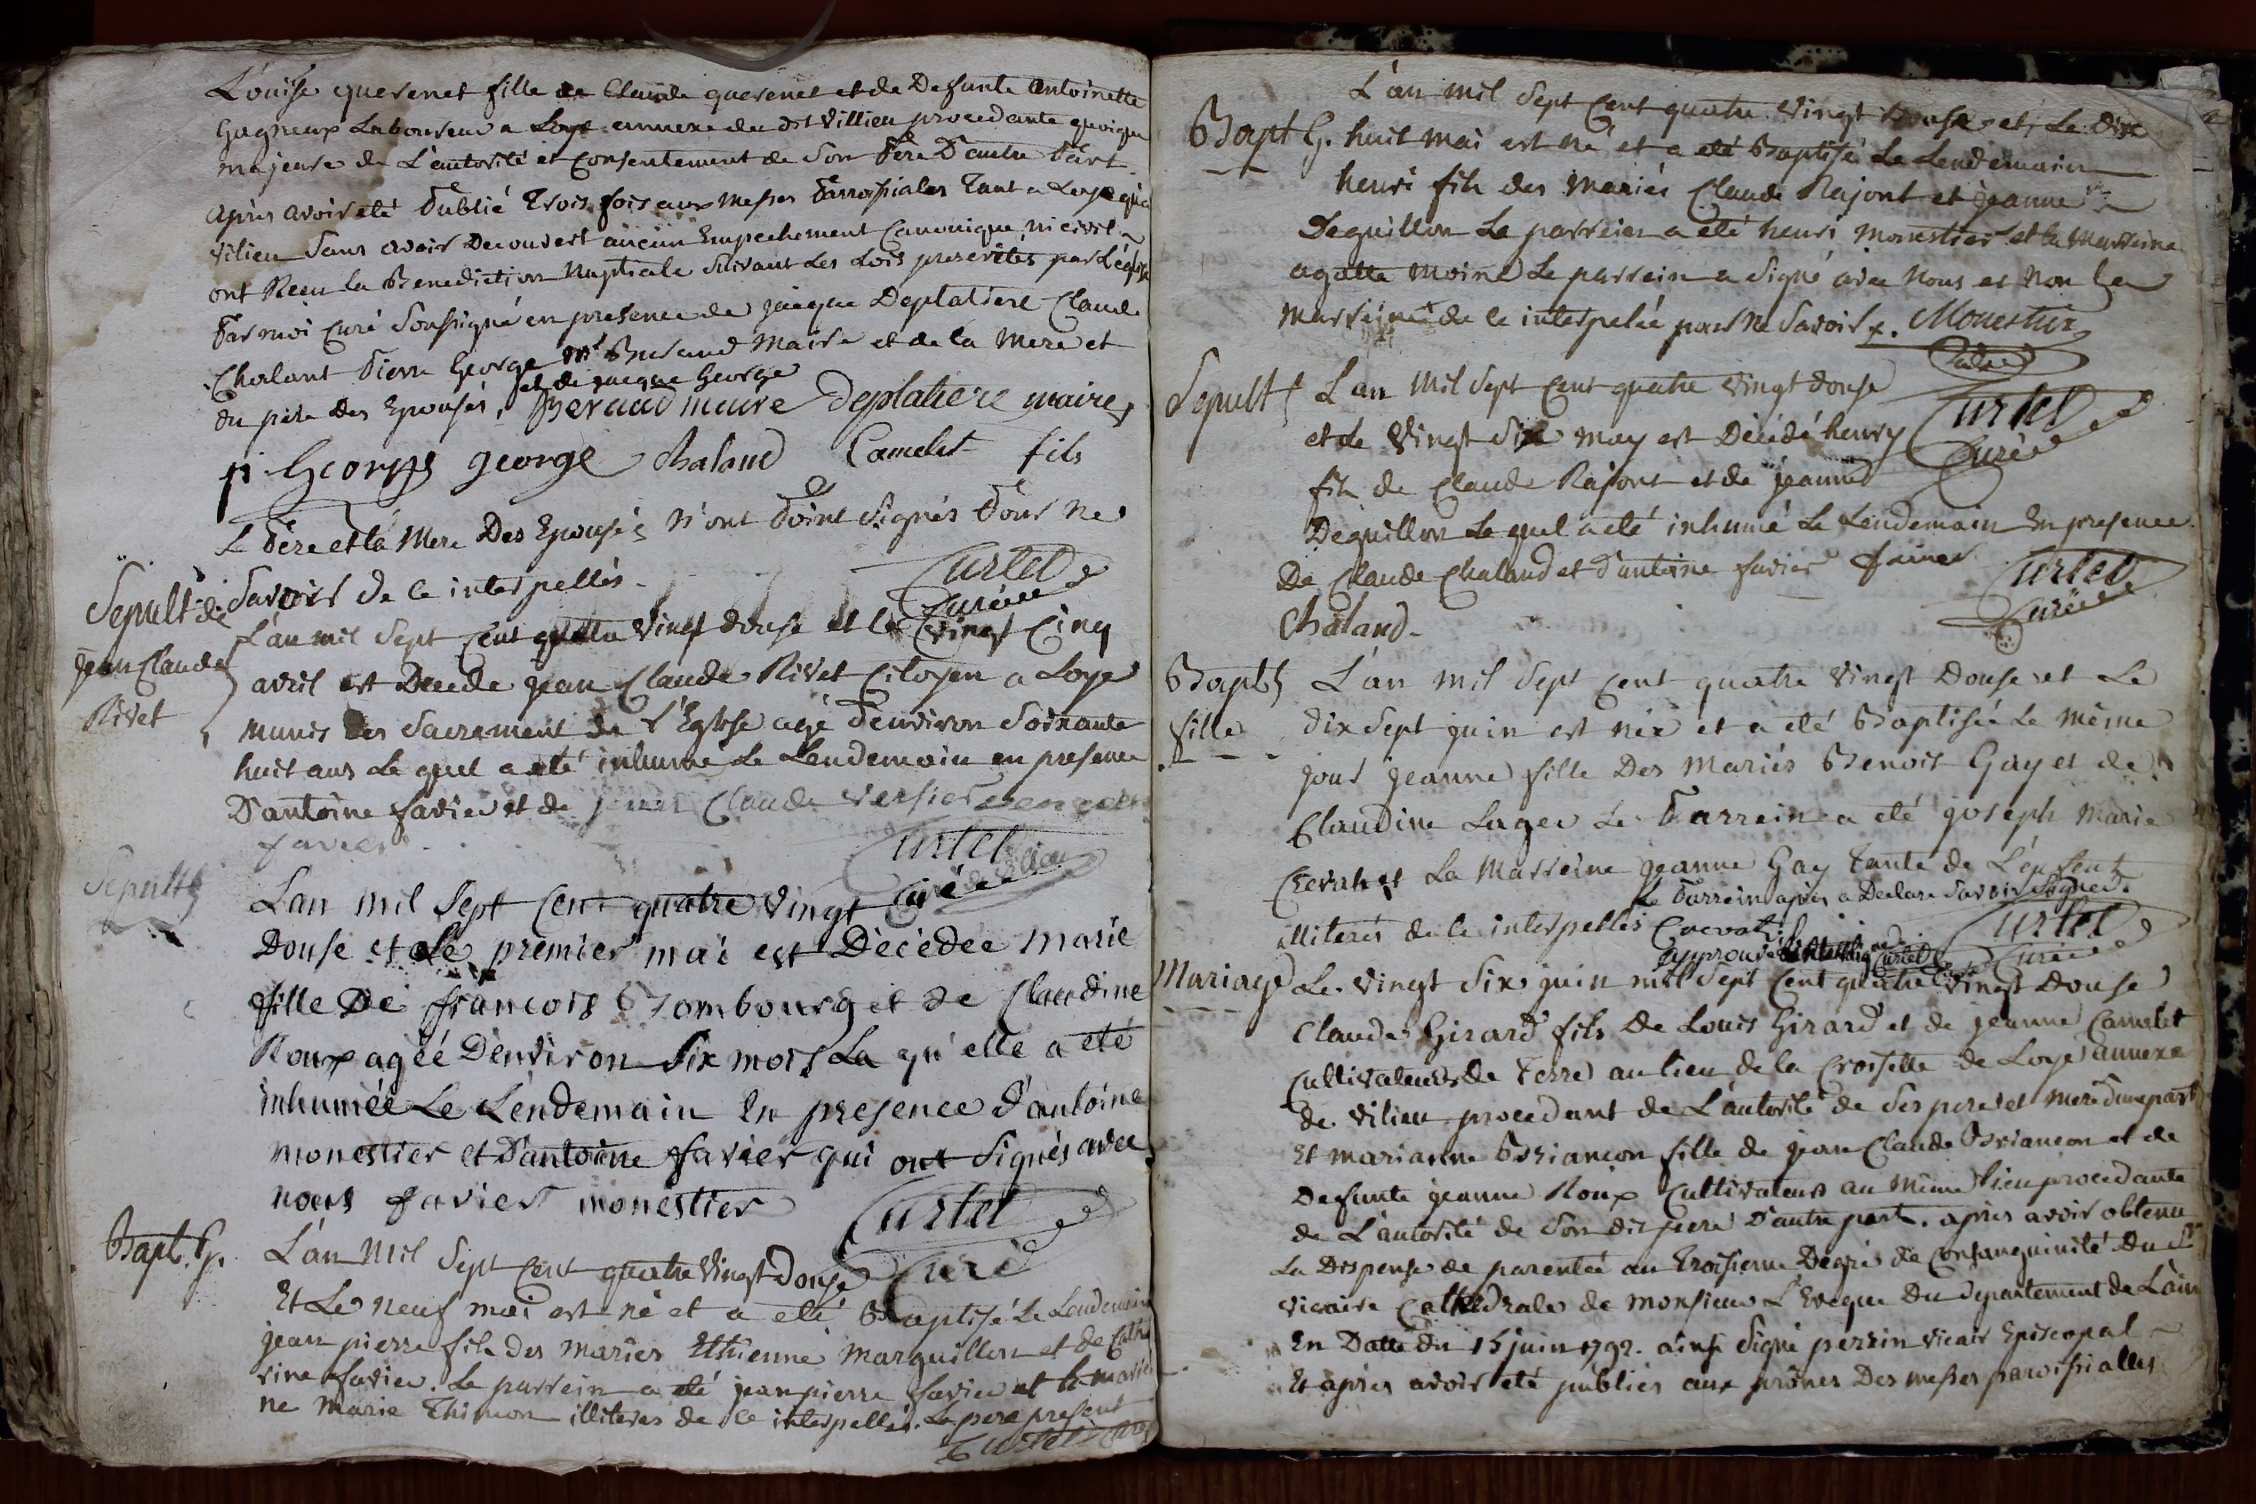 Louise querenet fille de Claude querenet et de Defunte antoinette
Gagneux Laboureur a Loye annexe du dit Villieu procedante quoique
majeure de L'autorité et Consentement de Son Père D'autre Part
après avoir été Publié Trois fois aux Messes Parroissiales Tant a Loye qu'a
vilieu Sans avoir Decouvert aucun Empechement Canonique ni civil
ont Recu la Benediction Nuptiale Suivant Les Lois prescrites par L'église
Par moi Curé Soussigné en presence de jacque Deplatiere Claude
Chalant Pierre George Mr Beraud Maire et de la Mere et
et de jacque George
du pere Des Epousés, Beraud maire Deplatiere maire
p. George george Chaland Camelet fils
Le Père et la Mere Des Epousés N'ont Point Signés Pour Ne
Savoir de ce interpellés. Curtel
Curé
Sepult. de
jean Claude
Rivet
L'an mil Sept Cent quatre Vingt douse et le Vingt Cinq
avril est Decede jean Claude Rivet Citoyen a Loye
Munis des Sacrement de L'Eglise agé D'environ Soixante
huit ans Le quel a été inhumé Le Lendemain en presence
D'antoine favier et de Claude
favier
Curtel
Curé
Sepult
L'an Mil Sept Cent quatre Vingt
Douse et Le premier mai est Décédée Marie
fille De françois Bombourg et de Claudine
Roux agéé D'environ Six mois La qu'elle a été
inhumée Le Lendemain En presence d'antoine
monestier et D'antoine favier qui ont Signés avec
nous favier monestier Curtel
Curé
Bapt. G.
L'an Mil Sept Cent quatre Vingt Douse
Et Le neuf mai est né et a été Baptisé Le Lendemain
jean pierre fils des mariés Ethienne Marguillon et de Cathe
rine favier. Le parrein a été jean pierre favier et la marei
ne Marie Thimon illiteres de ce interpellés. Le pere present
Curtel Curé
L'an mil Sept Cent quatre Vingt Douse et Le Dix
Bapt G. huit mai est né et a été Baptisé Le Lendemain
henri fils des Mariés Claude Rajont et jeanne
Deguillon Le parrein a été henri monestier et la Marreine
agatte Moine Le parrein a Signé avec Nous et Non La
Marreine de ce interpelée pour Ne Savoir. Monestier
Sepult
L'an Mil Sept Cent quatre Vingt Douse
et Le Vingt Six may est Décédé henry
fils de Claude Rajont et de jeanne
Deguillon Le quel a été inhumé Le Lendemain En presence
De Claude Chaland et d'antoine favier favier
Chaland
Curtel
Curé
Curtel
Curé
Bapt
fille
L'an Mil Sept Cent quatre Vingt Douse et Le
Dix Sept juin est née et a été Baptisée Le Même
jour jeanne fille Des Mariés Benoit Gay et de
Claudine Lager Le Parrein a été joseph Marie
Crevat et La Marreine jeanne Gay Tante de L'enfent
Le Parrein après a Declaré Savoir Signer
illiterés de Ce interpellés Crevat
approuvé Curtel
Curtel
Curé
Mariage
Le Vingt Six juin mil Sept Cent quatre Vingt Douse
Claude Girard fils De Louis Girard et de jeanne Camelet
Cultivateurs de Terre au lieu de la Croisette de Loye annexe
de Vilieu procedant de L'autorité de Ses pere et Mere d'une part
Et marianne Briancon fille de jean Claude Briancon et de
Defunte jeanne Roux Cultivateur au Même lieu procedante
de L'autorité de Son dit pere D'autre part. après avoir obtenu
La Dispense de parenteé au Troisieme Degré de Consanguinité Du Sr
Vicaire Cathedrale de monsieur L'Eveque Du Departement de L'ain
En Datte du 15 juin 1792. ainsi Signé perrin Vicair Episcopal
Et après avoir été publiés aux prônes Des messes paroissialles